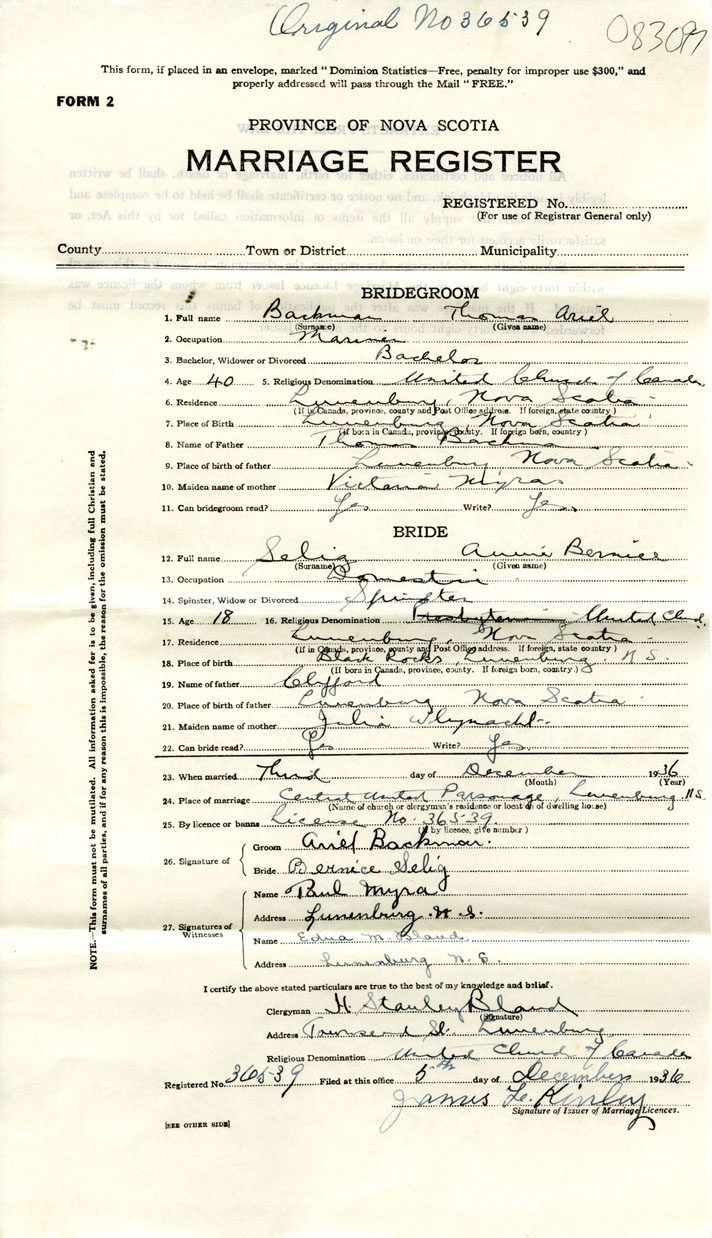 Original No 36539
083097
This form, if placed in an envelope, marked "Dominion Statistics—Free, penalty for improper use $300," and
properly addressed will pass through the Mail "FREE."
FORM 2
PROVINCE OF NOVA SCOTIA
MARRIAGE REGISTER
REGISTERED No.
(For use of Registrar General only)
County Town or District Municipality
BRIDEGROOM
1. Full name Backman Thomas Ariel
(Surname) (Given name)
2. Occupation Mariner
3. Bachelor, Widower or Divorced Bachelor
4. Age 40 5. Religious Denomination United Church of Canada
6. Residence Lunenburg, Nova Scotia
(If in Canada, province, county and Post Office address. If foreign, state country)
7. Place of Birth Lunenburg Nova Scotia
(If born in Canada, province, county. If foreign born, country)
8. Name of Father Thomas Backman
9. Place of birth of father Lunenburg Nova Scotia
10. Maiden name of mother Victoria Myras
11. Can bridegroom read? Yes Write? Yes
BRIDE
12. Full name Selig Annie Bernice
(Surname) (Given name)
13. Occupation Domestic
14. Spinster, Widow or Divorced Spinster
15. Age 18 16. Religious Denomination Presbyterian United Church
17. Residence Lunenburg, Nova Scotia
(If in Canada, province, county and Post Office address. If foreign, state country)
18. Place of birth Black Rocks, Lunenburg, N S
(If born in Canada, province, county. If foreign born, country)
19. Name of father Clifford
20. Place of birth of father Lunenburg Nova Scotia
21. Maiden name of mother Julia Whynacht
22. Can bride read? Yes Write? Yes
23. When married Third day of December 1936
(Month) (Year)
24. Place of marriage Central United Parsonage, Lunenburg N.S.
(Name of church or clergyman's residence or location of dwelling house)
25. By licence or banns License No. 36539
(If by licence, give number)
26. Signature of Groom Ariel Backman.
Bride Bernice Selig
27. Signatures of Witnesses Name Paul Myra
Address Lunenburg N.S.
Name Edna M. Bland
Address Lunenburg N.S.
I certify the above stated particulars are true to the best of my knowledge and belief.
Clergyman H. Stanley Bland
(Signature)
Address Townsend St. Lunenburg
Religious Denomination United Church of Canada
Registered No. 36539 Filed at this office 5th day of December 1936
James L. Kinley
Signature of Issuer of Marriage Licences.
[SEE OTHER SIDE]
NOTE.—This form must not be mutilated. All information asked for is to be given, including full Christian and
surnames of all parties, and if for any reason this is impossible, the reason for the omission must be stated.